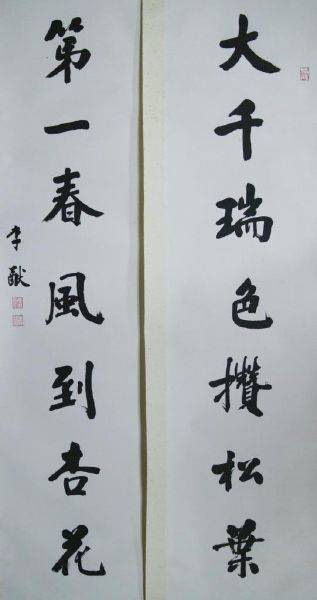 大千瑞色攢松葉
第一春風到杏花
李猷